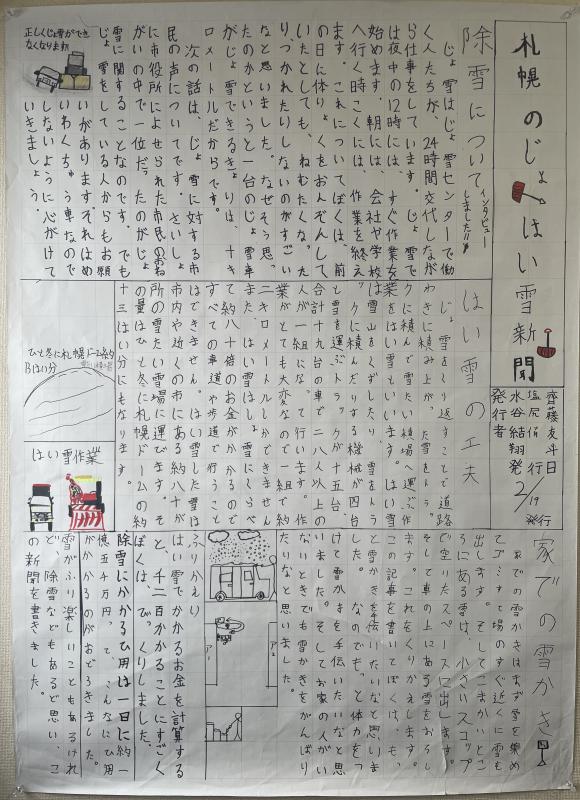 札幌のじょはい雪新聞
齊藤友斗
水谷結翔
発行者
発行日
2/19
発行
除雪について
インタビュー
しました!!
じょ雪はじょ雪センターで働
く人たちが、24時間交代しなが
ら仕事をしています。じょ雪で
は夜中の12時には、すぐ作業を
始めます。朝には、会社や学校
へ行く時こくには、作業を終え
ます。これについてぼくは、前
の日に体りょくをおんぞんして
いたとしても、ねむたくなった
りつかれたりしないのがすごい
なと思いました。なぜそう思っ
たのかというと一台のじょ雪車
がじょ雪できるきょりは、十キ
ロメートルだからです。
次の話は、じょ雪に対する市
民の声についてです。さいしょ
に市役所によせられた市民のね
がいの中で一位だったのがじょ
雪に関することなのです。でも
じょ雪をしている人からもお願
いがありますそれはめ
いわくちゅう車なので
しないように心がけて
いきましょう。
正しくじょ雪ができ
なくなります。
はい雪の工夫
じょ雪をくり返すことで道路
わきに積み上がった雪をトラッ
クに積んで雪たい積場へ運ぶ作
業をはい雪といいます。はい雪
は雪山をくずしたり雪をトラ
ックに積んだりする機械が四台
と雪を運ぶトラックが十五台、
合計十九台の車で二八人以上の
人が一組になって行います。作
業がとても大変なので一組で約
二キロメートルしかできません
また、はい雪はじょ雪にくらべ
て約八十倍のお金がかかるので
すべての車道や歩道で行うこと
はできません。はい雪した雪は
市内や近くの市にある約八十か
所の雪たい雪場に運びます。そ
の量はひと冬に札幌ドームの約
十三はい分にもなります。
ひと冬に札幌ドーム約
13はい分
はい雪作業
家での雪かき
家での雪かきはまず雪を集め
てゴミすて場のすぐ近くに雪を
出します。そしてこまかいとこ
ろにある雪は、小さいスコップ
で空いたスペースに出します。
そして車の上にある雪をおろし
ます。これをくりかえします。
この記事を書いてぼくは、も
と雪かきを伝いたいなと思いま
した。なのでもっと体力をつ
けて雪かきを手伝いたいなと思
いました。そしてお家の人がい
ないときでも雪かきをがんばり
たりなと思いました。
ふりかえり
はい雪でかかるお金を計算する
と、千二百かかることにすごく
ぼくは、びっくりしました。
除雪にかかるひ用は一日に約一
億五千万円、って、こんなにひ用
がかかるのがおどろきました。
雪がふり楽しいこともあるけれ
ど除雪などもあるど思いこ
の新聞を書きました。